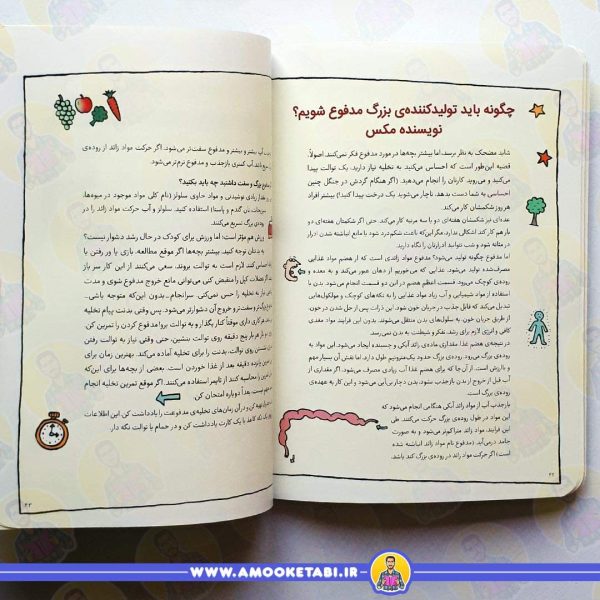 چگونه باید تولیدکننده‌ی بزرگ مدفوع شویم؟
نویسنده مکس
شاید مضحک به نظر برسد، اما بیشتر بچه‌ها در مورد مدفوع فکر نمی‌کنند. اصولاً،
قضیه این‌طور است که احساس می‌کنید به تخلیه نیاز دارید، یک توالت پیدا
می‌کنید و می‌روید. کارتان را انجام می‌دهید. (اگر هنگام گردش در جنگل چنین
احساسی به شما دست بدهد، ناچار می‌شوید یک درخت پیدا کنید!) بیشتر افراد
هر روز شکمشان کار می‌کند.
عده‌ای نیز شکمشان هفته‌ای دو یا سه مرتبه کار می‌کند. حتی اگر شکمتان هفته‌ای دو
بار هم کار کند اشکالی ندارد. مگر این‌که باعث شکم‌درد شود یا مانع انباشته شدن ادرار
در مثانه شود و شب نتوانید ادرارتان را نگاه دارید.
اما مدفوع چگونه تولید می‌شود؟ مدفوع مواد زائدی است که از هضم مواد غذایی
مصرف‌شده تولید می‌شود. غذایی که می‌خوریم از دهان عبور می‌کند و به معده و
روده‌ی کوچک می‌رود. قسمت اعظم هضم در این دو قسمت انجام می‌شود. بدن با
استفاده از مواد شیمیایی و آب زیاد مواد غذایی را به تکه‌های کوچک و مولکول‌هایی
تبدیل می‌کند که قابل جذب در جریان خون شود. این ذرات پس از حل شدن در خون،
از طریق جریان خون به سلول‌های بدن منتقل می‌شوند. بدون این فرایند مواد مغذی
کافی و انرژی لازم برای رشد، تفکر و شیطنت به بدن نمی‌رسد.
در نتیجه‌ی هضم غذا مقداری ماده‌ی زائد آبکی و چسبنده ایجاد می‌شود. این مواد به
روده‌ی بزرگ می‌رود. روده‌ی بزرگ حدود یک‌مترونیم طول دارد، اما نقش آن بسیار مهم
و باارزش است. از آن جا که برای هضم غذا آب زیادی مصرف می‌شود، اگر مقداری از
آب قبل از خروج از بدن بازجذب نشود، بدن دچار بی‌آبی می‌شود و این کار به عهده‌ی
روده‌ی بزرگ است.
بازجذب آب از مواد زائد آبکی هنگامی انجام می‌شود که
این مواد در طول روده‌ی بزرگ حرکت می‌کنند. طی
این فرایند مواد زائد متراکم‌تر می‌شود و به صورت
جامد درمی‌آید. (مدفوع نام مواد زائد انباشته شده
است) اگر حرکت مواد زائد در روده‌ی بزرگ کند باشد،
۴۲
آب بیشتر و بیشتر و مدفوع سفت‌تر می‌شود. اگر حرکت مواد زائد از روده‌ی
سریع باشد، آب کمتری بازجذب و مدفوع نرم‌تر می‌شود.
مدفوع بزرگ و سفت داشتید چه باید بکنید؟
مقدار زیادی نوشیدنی و مواد حاوی سلولز (نامی کلی مواد موجود در میوه‌ها،
سبزیجات، نان گندم و پاستا) استفاده کنید. سلولز و آب حرکت مواد زائد را در
روده‌ی بزرگ تسریع می‌کنند.
ورزش هم مؤثر است؛ اما ورزش برای کودک در حال رشد دشوار نیست؟
به بدنتان توجه کنید. بیشتر بچه‌ها اگر موقع مطالعه، بازی یا ور رفتن با
احساس کنند لازم است به توالت بروند، سعی می‌کنند از این کار سر باز
عضلات کپل را منقبض کنی می‌توانی مانع خروج مدفوع شوی و مدت
نیاز به تخلیه را حس نمی‌کنی. سرانجام، بدون این‌که متوجه باشی،
بزرگ‌تر و سفت‌تر و خروج آن دشوارتر می‌شود. پس وقتی بدنت پیام تخلیه
هر کاری داری موقتاً کنار بگذار و به توالت برو! مدفوع کردن را تمرین کن.
بار هم بار پنج دقیقه روی توالت بنشین، حتی وقتی نیاز به توالت رفتن
نشستن روی توالت، بدنت را برای تخلیه آماده می‌کند. بهترین زمان برای
پانزده دقیقه بعد از غذا خوردن است. بعضی از بچه‌ها برای این‌که
را محاسبه کنند از تایمر استفاده می‌کنند. اگر موقع تمرین تخلیه انجام
نیست. بعداً دوباره امتحان کن.
تهیه کن و در آن زمان‌های تخلیه‌ی مدفوعت را یادداشت کن. این اطلاعات
تکه کاغذ یا یک کارت یادداشت کن و در حمام یا توالت نگه دار.
۴۳
WWW.AMOOKETABI.IR